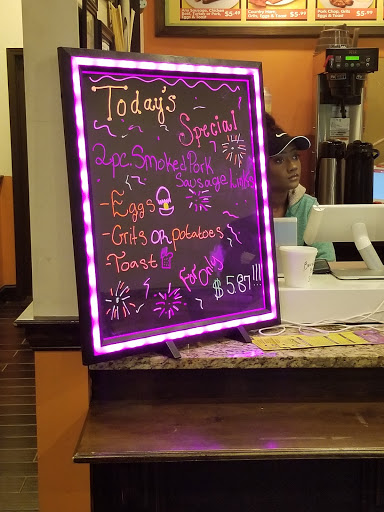 Today's
Special
2pc. Smoked Pork
Sausage links
-Eggs
-Grits or potatoes
-Toast
For Only
$5.87!!!
$5.49
$5.49
Eggs & Toast